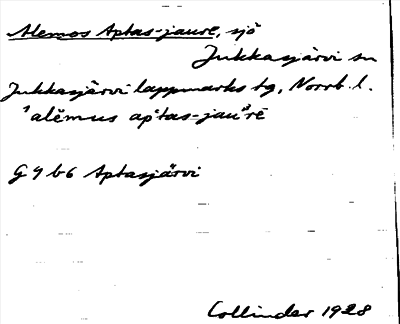 Alemos Aptas-jaure, sjö
Jukkasjärvi sn
Jukkasjärvi lappmarks tg, Norrb. l.
'alēmus ap'tas-jau'rē
G 9 b 6 Aptasjärvi
Collinder 1928